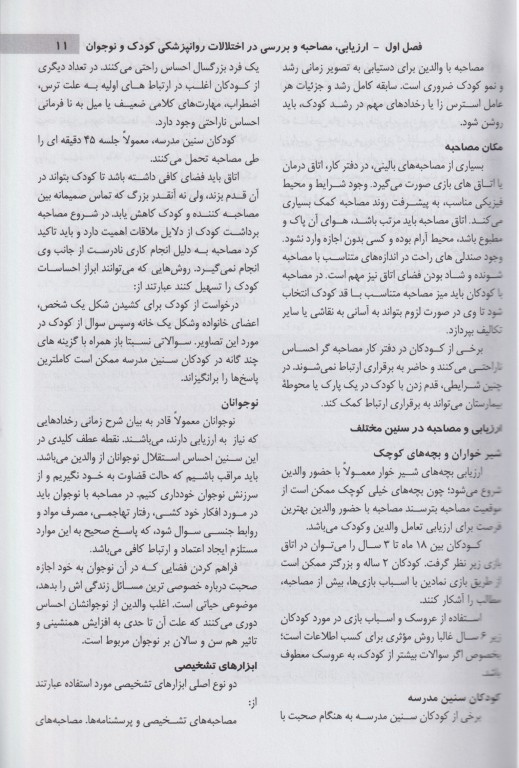 فصل اول - ارزیابی، مصاحبه و بررسی در اختلالات روانپزشکی کودک و نوجوان ۱۱
مصاحبه با والدین برای دستیابی به تصویر زمانی رشد
و نمو کودک ضروری است. سابقه کامل رشد و جزئیات هر
عامل استرس زا یا رخدادهای مهم در رشد کودک، باید
روشن شود.
مکان مصاحبه
بسیاری از مصاحبه‌های بالینی، در دفتر کار، اتاق درمان
یا اتاق های بازی صورت می‌گیرد. وجود شرایط و محیط
فیزیکی مناسب، به پیشرفت روند مصاحبه کمک بسیاری
می‌کند. اتاق مصاحبه باید مرتب باشد، هوای آن پاک و
مطبوع باشد، محیط آرام بوده و کسی بدون اجازه وارد نشود.
وجود صندلی های راحت در اندازه‌های متناسب با مصاحبه
شونده و شاد بودن فضای اتاق نیز مهم است. در مصاحبه
با کودکان باید میز مصاحبه متناسب با قد کودک انتخاب
شود تا وی در صورت لزوم بتواند به آسانی به نقاشی یا سایر
تکالیف بپردازد.
برخی از کودکان در دفتر کار مصاحبه گر احساس
ناراحتی می‌کنند و حاضر به برقراری ارتباط نمی‌شوند. در
چنین شرایطی، قدم زدن با کودک در یک پارک یا محوطهٔ
بیمارستان می‌تواند به برقراری ارتباط کمک کند.
ارزیابی و مصاحبه در سنین مختلف
شیر خواران و بچه‌های کوچک
ارزیابی بچه‌های شیر خوار معمولاً با حضور والدین
شروع می‌شود؛ چون بچه‌های خیلی کوچک ممکن است از
موقعیت مصاحبه بترسند مصاحبه با حضور والدین بهترین
فرصت برای ارزیابی تعامل والدین و کودک می‌باشد.
کودکان بین ۱۸ ماه تا ۳ سال را می‌توان در اتاق
بازی زیر نظر گرفت. کودکان ۲ ساله و بزرگتر ممکن است
از طریق بازی نمادین با اسباب بازی‌ها، بیش از مصاحبه،
مطالب را آشکار کنند.
استفاده از عروسک و اسباب بازی در مورد کودکان
زیر ۶ سال غالبا روش مؤثری برای کسب اطلاعات است؛
بخصوص اگر سوالات بیشتر از کودک، به عروسک معطوف
باشد.
کودکان سنین مدرسه
برخی از کودکان سنین مدرسه به هنگام صحبت با
یک فرد بزرگسال احساس راحتی می‌کنند. در تعداد دیگری
از کودکان اغلب در ارتباط های اولیه به علت ترس،
اضطراب، مهارت‌های کلامی ضعیف یا میل به نا فرمانی
احساس ناراحتی وجود دارد.
کودکان سنین مدرسه، معمولاً جلسه ۴۵ دقیقه ای را
طی مصاحبه تحمل می‌کنند.
اتاق باید فضای کافی داشته باشد تا کودک بتواند در
آن قدم بزند، ولی نه آنقدر بزرگ که تماس صمیمانه بین
مصاحبه کننده و کودک کاهش یابد. در شروع مصاحبه
برداشت کودک از دلایل ملاقات اهمیت دارد و باید تاکید
کرد مصاحبه به دلیل انجام کاری نادرست از جانب وی
انجام نمی‌گیرد. روش‌هایی که می‌توانند ابراز احساسات
کودک را تسهیل کنند عبارتند از:
درخواست از کودک برای کشیدن شکل یک شخص،
اعضای خانواده وشکل یک خانه وسپس سوال از کودک در
مورد این تصاویر. سوالاتی نسبتا باز همراه با گزینه های
چند گانه در کودکان سنین مدرسه ممکن است کاملترین
پاسخ‌ها را برانگیزاند.
نوجوانان
نوجوانان معمولاً قادر به بیان شرح زمانی رخدادهایی
که نیاز به ارزیابی دارند، می‌باشند. نقطه عطف کلیدی در
این سنین احساس استقلال نوجوانان از والدین می‌باشد.
باید مراقب باشیم که حالت قضاوت به خود نگیریم و از
سرزنش نوجوان خودداری کنیم. در مصاحبه با نوجوان باید
در مورد افکار خود کشی، رفتار تهاجمی، مصرف مواد و
روابط جنسی سوال شود، که پاسخ صحیح به این موارد
مستلزم ایجاد اعتماد و ارتباط کافی می‌باشد.
فراهم کردن فضایی که در آن نوجوان به خود اجازه
صحبت درباره خصوصی ترین مسائل زندگی اش را بدهد،
موضوعی حیاتی است. اغلب والدین از نوجوانشان احساس
دوری می‌کنند که علت آن تا حدی به افزایش همنشینی و
تاثیر هم سن و سالان بر نوجوان مربوط است.
ابزارهای تشخیصی
دو نوع اصلی ابزارهای تشخیصی مورد استفاده عبارتند
از:
مصاحبه‌های تشخیصی و پرسشنامه‌ها. مصاحبه‌های